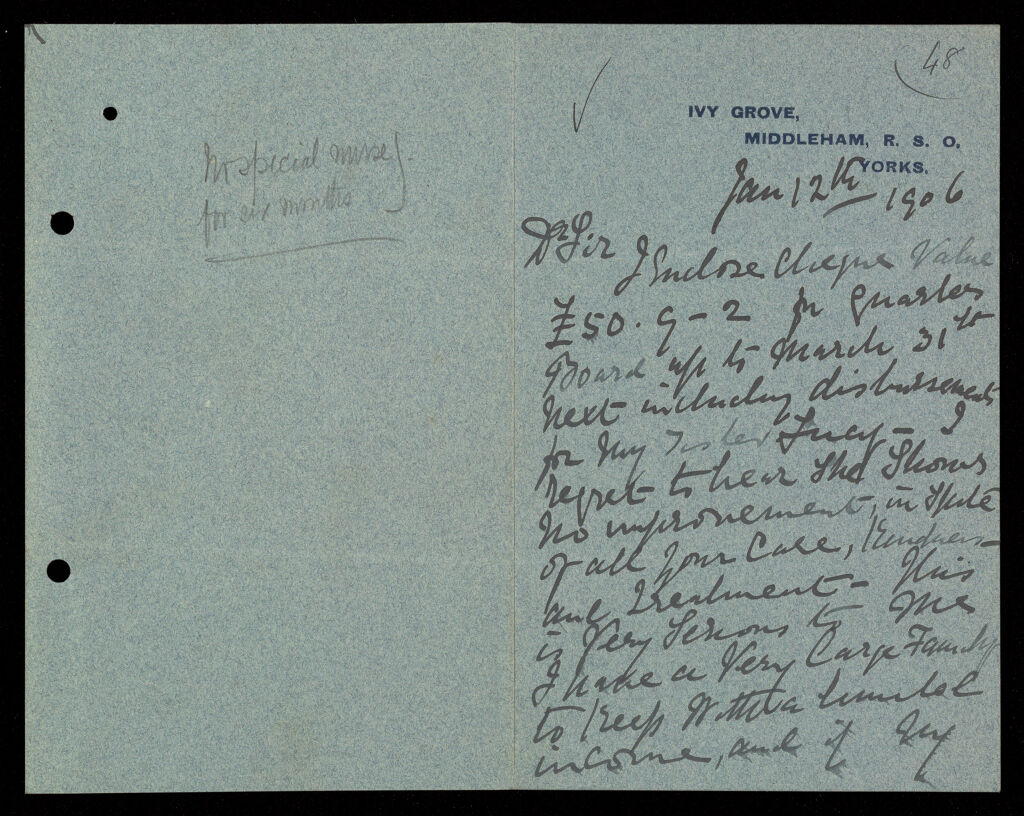 No special nurse
for six months
48
IVY GROVE,
MIDDLEHAM, R. S. O.
YORKS.
Jan 12th 1906
Dr Sir
I Enclose Cheque Value
£50. 9 - 2 for quarters
Board up to March 31st
next including disbursements
for my sister Lucy - I
regret to hear She Shows
no improvement, in Spite
of all your Care, Kindness -
and Treatment - This
is Very Serious to Me
I have a Very Large Family
to Keep With a limited
income, and if My